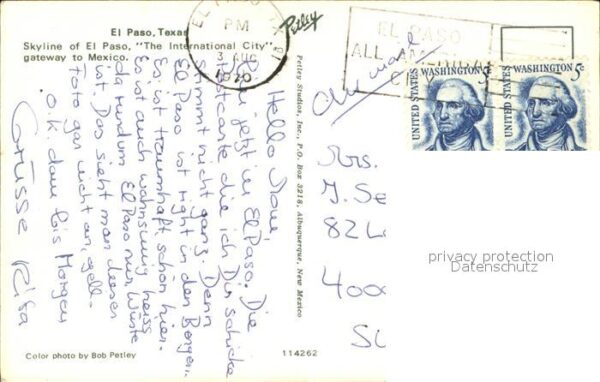 El Paso, Texas
Skyline of El Paso, "The International City"
gateway to Mexico.
EL PASO
PM
3 AUG
1970
Petley
EL PASO
ALL AMERICAN
CITY
UNITED STATES
WASHINGTON 5c
UNITED STATES
WASHINGTON 5c
Hello
Bin jetzt in El Paso. Die
Postcarte die ich Dir schicke
stimmt nicht ganz. Denn
El Paso ist right in den Bergen.
Es ist traumhaft schön hier.
Es ist auch wahnsinnig heiss
da rundum El Paso nur Wüste
ist. Das sieht man diesem
Foto gar nicht an, gell.
O.K. dann bis Morgen
Grüsse Risa
Petley Studios, Inc., P.O. Box 3218, Albuquerque, New Mexico
Mrs.
J. Se
82
400
privacy protection
Datenschutz
Color photo by Bob Petley
114262